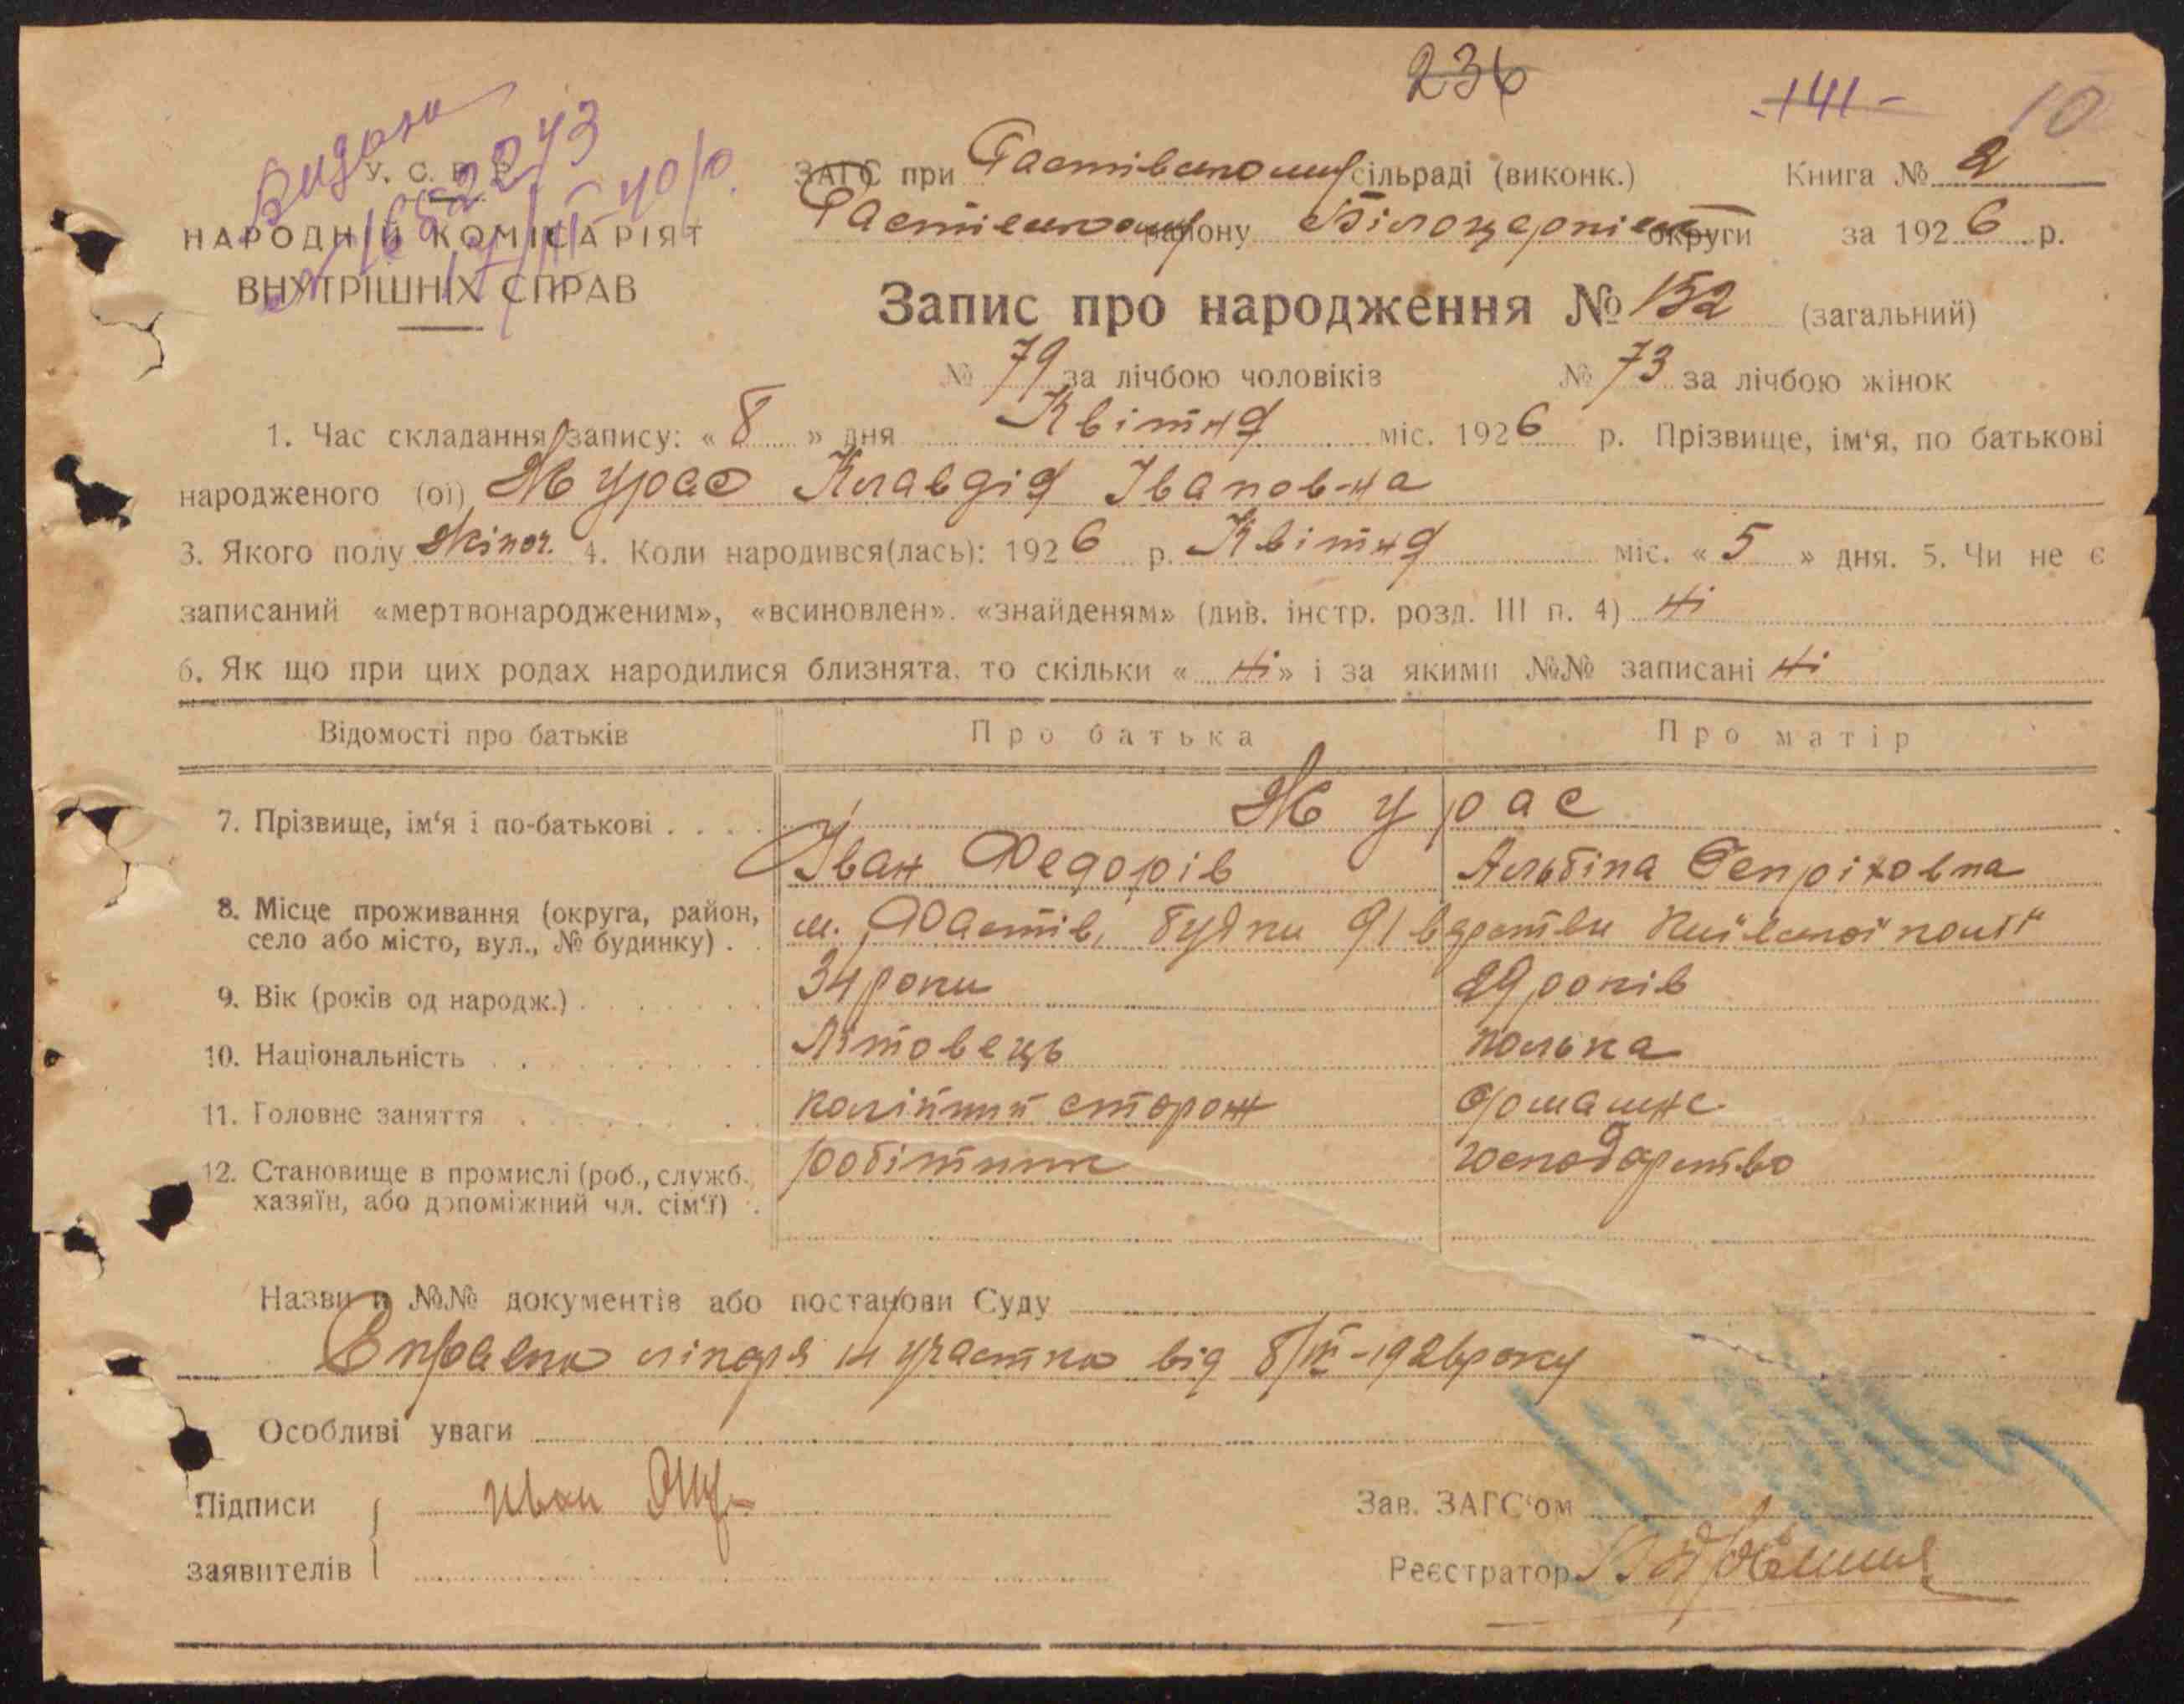 236
-141-
10
Видано
У. С. Р. Р.
НАРОДНІЙ КОМІСАРІЯТ
ВНУТРІШНІХ СПРАВ
ЗАГС при Фастівському сільраді (виконк.) Книга № 2
Фастівському району Білоцерків округи за 1926 р.
Запис про народження № 152 (загальний)
№ 79 за лічбою чоловіків № 73 за лічбою жінок
1. Час складання запису: « 8 » дня Квітня міс. 1926 р. Прізвище, ім‘я, по батькові
народженого (ої) Журас Клавдія Івановна
3. Якого полу жіноч. 4. Коли народився(лась): 1926 р. Квітня міс. « 5 » дня. 5. Чи не є
записаний «мертвонародженим», «всиновлен». «знайденям» (див. інстр. розд. III п. 4) ні
6. Як що при цих родах народилися близнята, то скільки « ні » і за якими №№ записані ні
Відомості про батьків Про батька Про матір
7. Прізвище, ім‘я і по-батькові . . . . Журас
Іван Федорів Альбіна Генріховна
8. Місце проживання (округа, район,
село або місто, вул., № будинку) . . м. Фастів, будки 91 Київської
9. Вік (років од народж.) . . . . . . 34 роки 29 років
10. Національність . . . . . . . . Літовець полька
11. Головне заняття . . . . . . . колійний сторож домашнє
12. Становище в промислі (роб., служб.,
хазяїн, або допоміжний чл. сім‘ї) . робітник господарство
Назви и №№ документів або постанови Суду
Справка лікаря участка від 8/IV-1926 року
Особливі уваги
Підписи Иван
заявителів
Зав. ЗАГС‘ом
Реєстратор